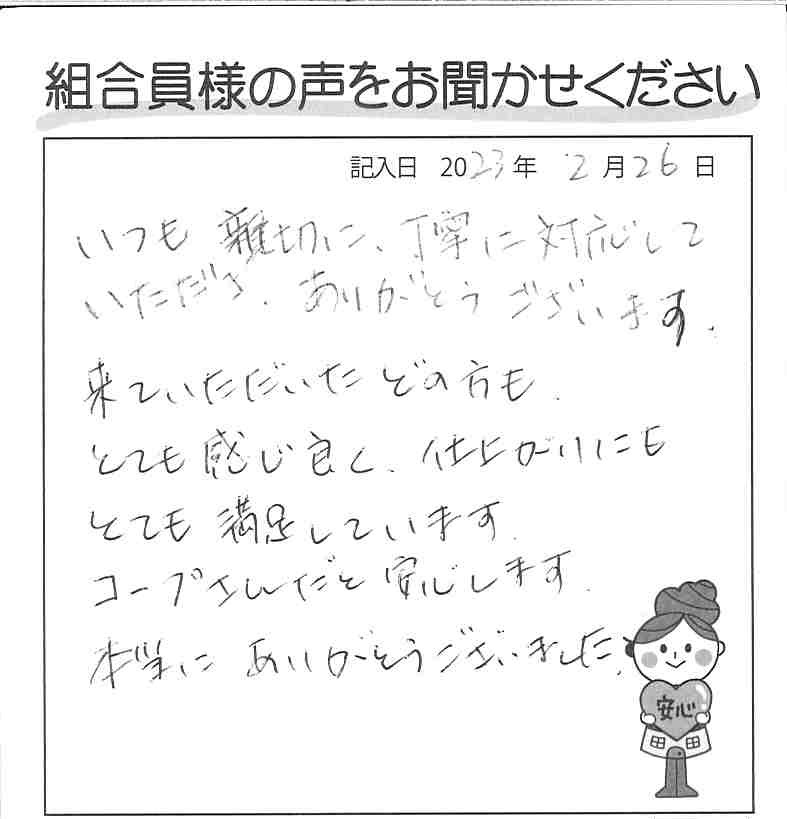 組合員様の声をお聞かせください
記入日 2023年 2月26日
いつも 親切に、丁寧に対応して
いただき、ありがとうございます。
来ていただいた どの方も、
とても 感じ良く、仕上がりにも
とても 満足しています。
コープさんだと 安心します。
本当に ありがとうございました。
安心